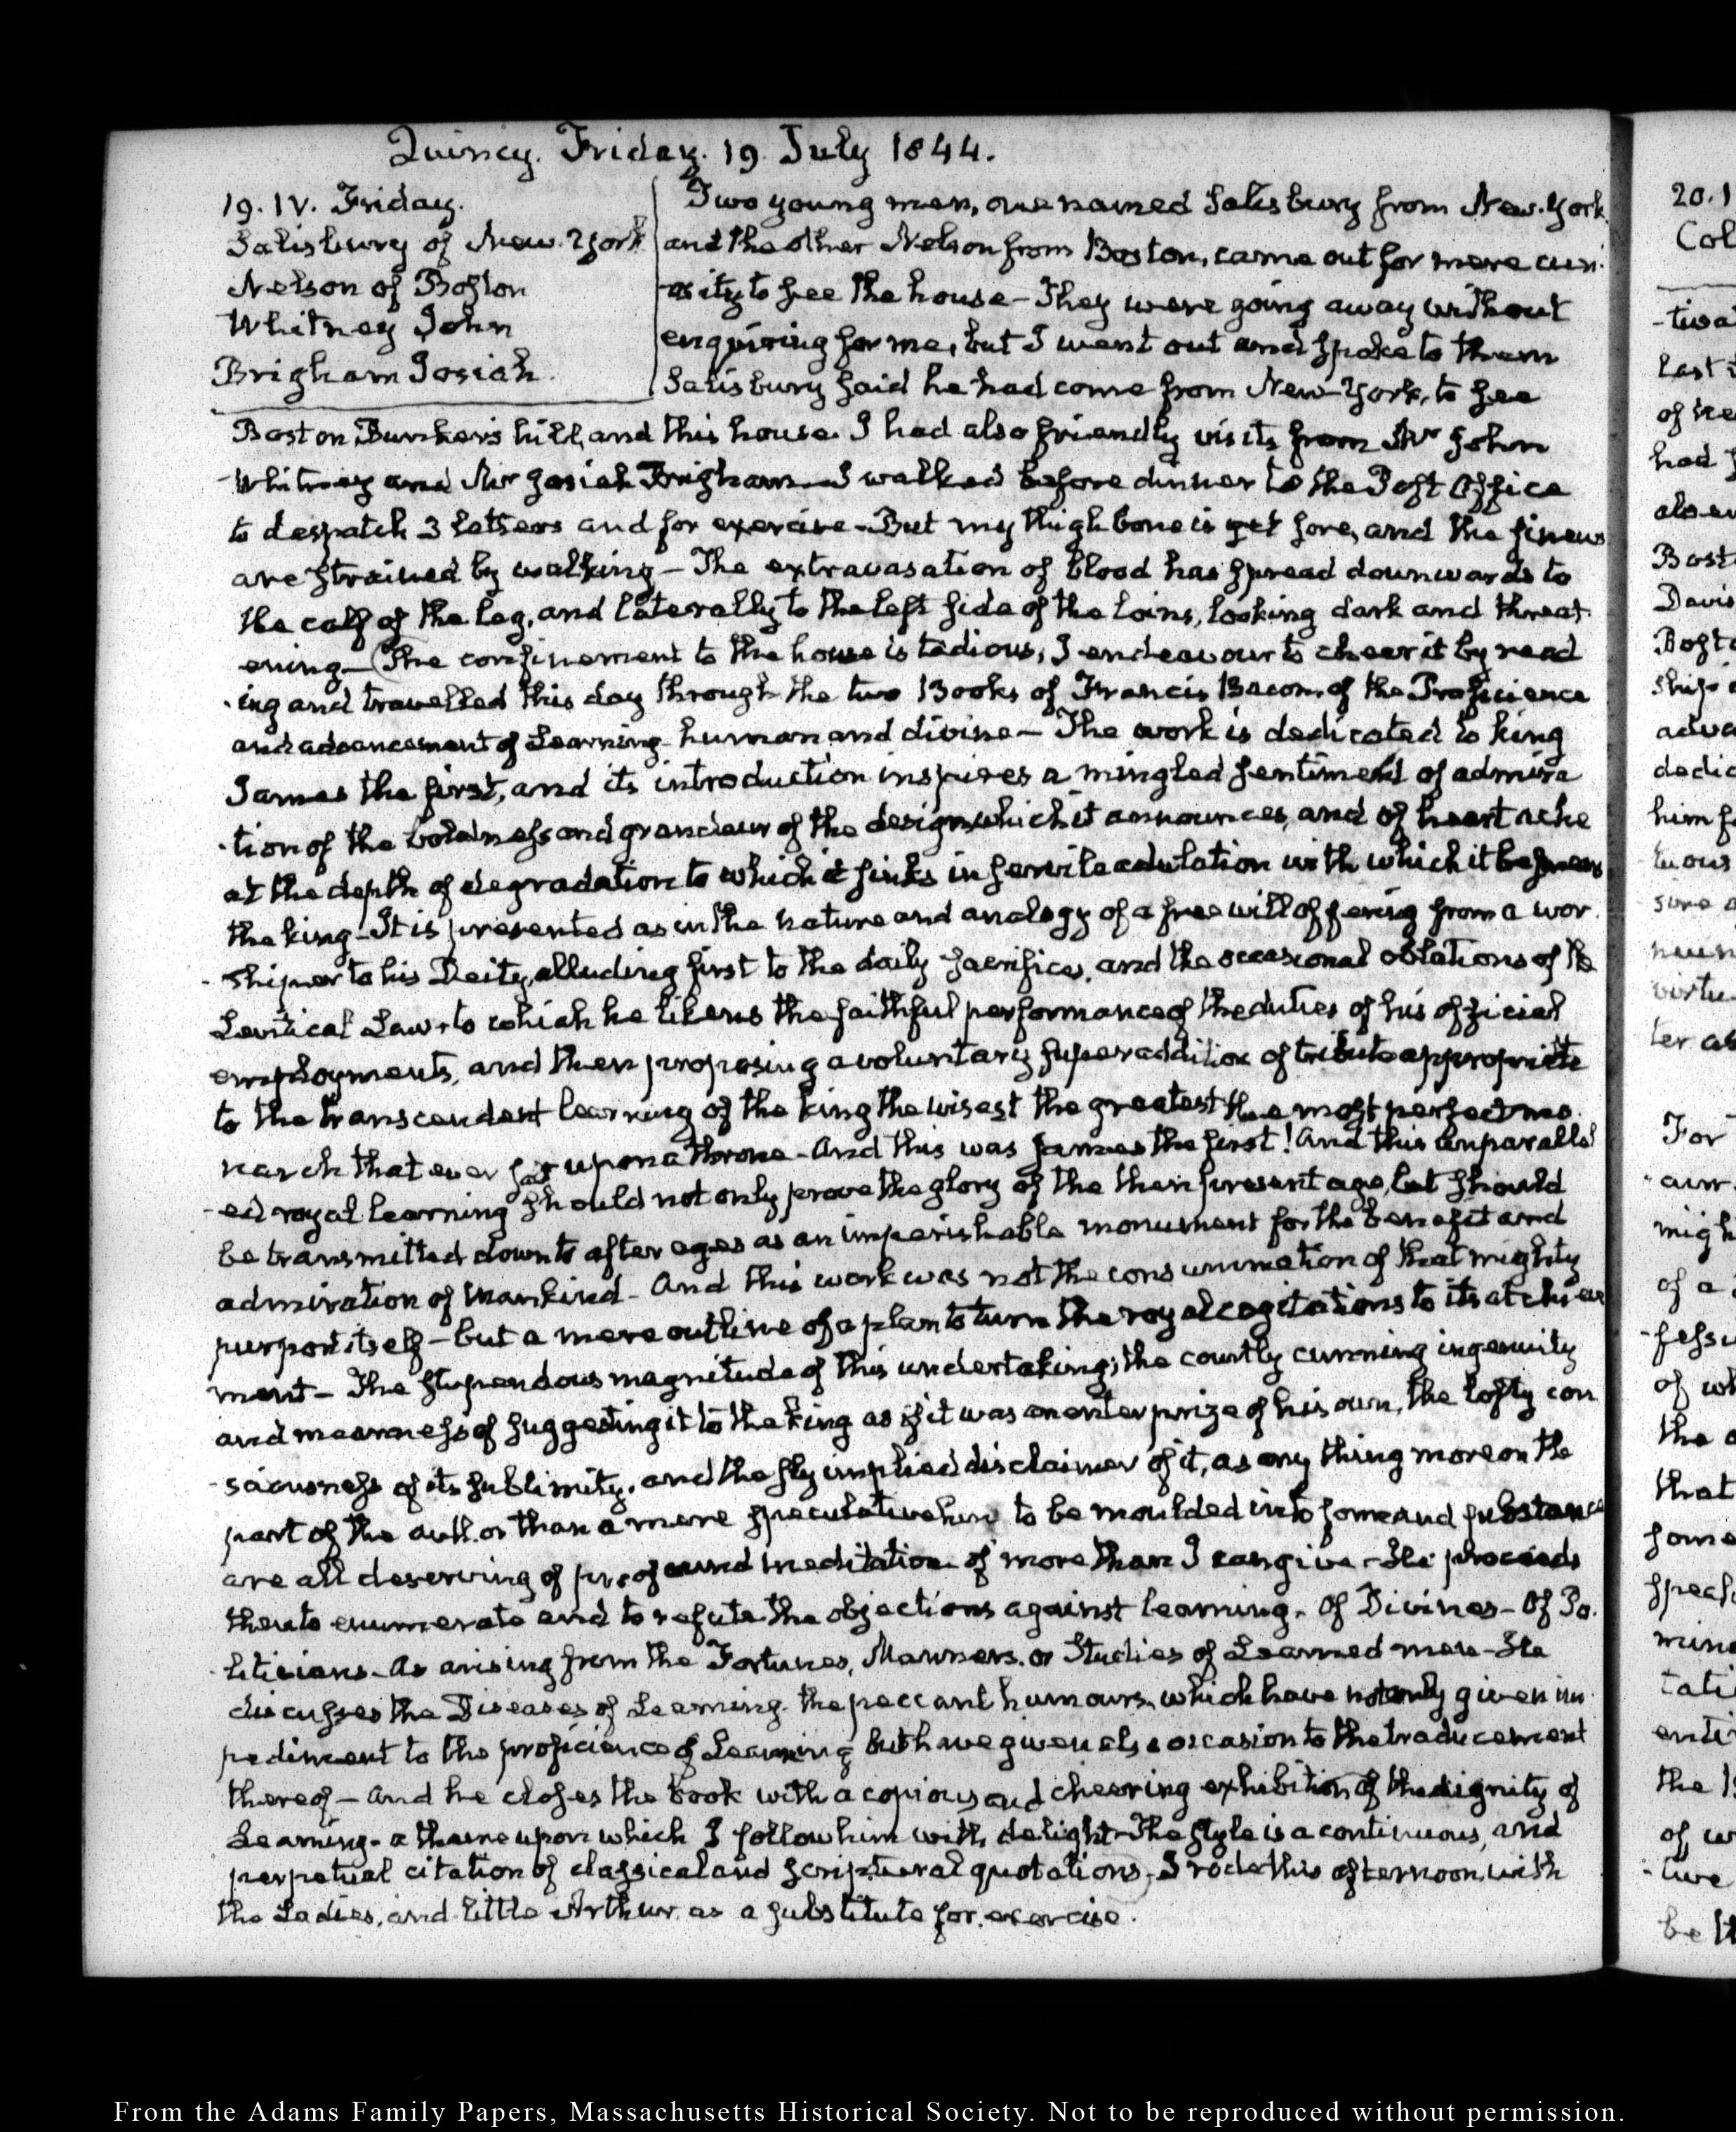 Quincy. Friday. 19. July 1844.
19. IV. Friday.
Salisbury of New-York
Nelson of Boston
Whitney John
Brigham Josiah.
Two young men, one named Salisbury from New-York
and the other Nelson from Boston, came out for mere curi-
-osity to see the house - They were going away without
enquiring for me, but I went out and spoke to them
Salisbury said he had come from New-York, to see
Boston, Bunker's hill, and this house. I had also friendly visits from Mr John
Whitney and Mr Josiah Brigham - I walked before dinner to the Post Office
to despatch 3 letters and for exercise - But my thigh bone is yet sore, and the sinews
are strained by walking - The extravasation of blood has spread downwards to
the calf of the leg, and laterally to the left side of the loins, looking dark and threat-
ening - (The confinement to the house is tedious, I endeavour to cheer it by read
-ing and travelled this day through the two Books of Francis Bacon, of the Proficience
and advancement of Learning human and divine - The work is dedicated to king
James the first, and its introduction inspires a mingled sentiment of admira
-tion of the boldness and grandeur of the design which it announces, and of heart ache
at the depth of degradation to which it sinks in servile adulation with which it besmears
the king - It is presented as in the nature and analogy of a free will offering from a wor-
-shiper to his Deity, alluding first to the daily sacrifice, and the occasional oblations of the
Levitical Law, to which he likens the faithful performance of the duties of his official
employments, and then proposing a voluntary superaddition of tribute appropriate
to the transcendent learning of the king the wisest the greatest the most perfect mo-
narch that ever sat upon a throne - And this was James the first! And this unparallel
-ed royal learning should not only prove the glory of the then present age, but should
be transmitted down to after ages as an imperishable monument for the benefit and
admiration of mankind - And this work was not the consummation of that mighty
purpose itself - but a mere outline of a plan to turn the royal cogitations to its atchieve
ment - The stupendous magnitude of this undertaking; the courtly cunning ingenuity
and meanness of suggesting it to the king as if it was an enterprize of his own, the lofty con
-sciousness of its sublimity, and the sly implied disclaimer of it, as any thing more on the
part of the author than a mere speculative to be moulded into form and substance
are all deserving of profound meditation of more than I can give - He proceeds
then to enumerate and to refute the objections against learning - Of Divines - Of Po-
-liticians - As arising from the Fortunes, Manners, or Studies of Learned men - He
discusses the Diseases of Learning the peccant humours, which have not only given im-
pediment to the proficience of Learning but have given also occasion to the traducement
thereof - and he closes the book with a copious and cheering exhibition of the dignity of
Learning - a theme upon which I follow him with delight - The style is a continuous, and
perpetual citation of classical and scriptural quotations) - I rode this afternoon with
the Ladies, and little Arthur, as a substitute for exercise.
From the Adams Family Papers, Massachusetts Historical Society. Not to be reproduced without permission.